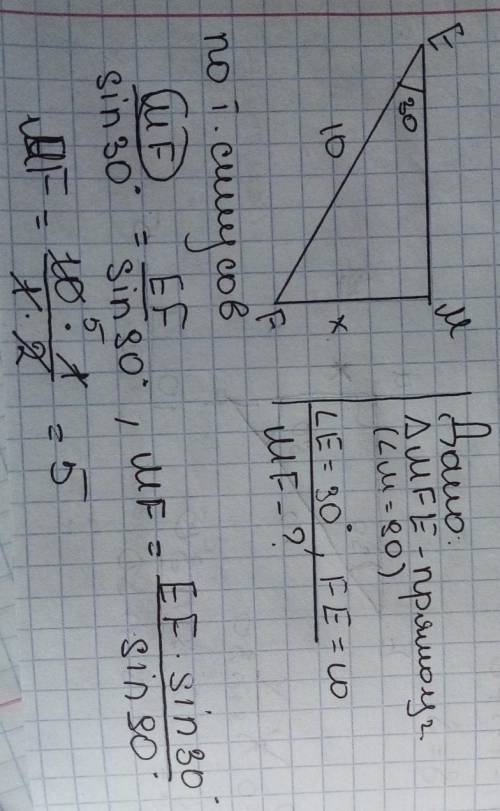 E
30
M
10
x
F
Дано:
△MFE - прямоуг.
(∠M = 90)
∠E = 30°, FE = 10
MF - ?
по т. синусов
MF / sin30° = EF / sin90°, MF = EF · sin30° / sin90°
MF = 10 · 1 / 1 · 2 = 5
5